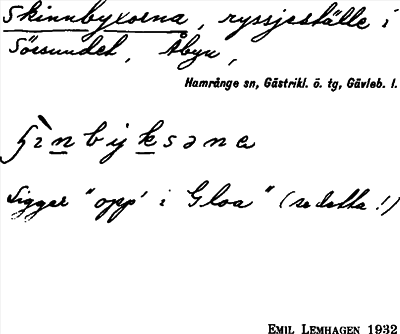 Skinnbyxorna, ryssjeställe i
Sörsundet, Åbyn,
Hamrånge sn, Gästrikl. ö. tg, Gävleb. l.
ʃìnbyksəna
Ligger "opp' i Gloa" (se detta!)
EMIL LEMHAGEN 1932